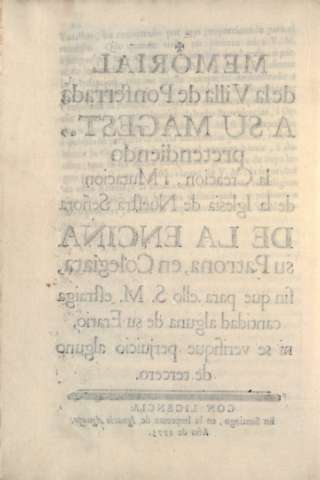 MEMORIAL
de la Villa de Ponferrada
A SU MAGEST.
pretendiendo
la Creacion, ì Mutacion
de la Iglesia de Nuestra Señora
DE LA ENCINA
su Patrona, en Colegiata,
sin que para ello S. M. estraiga
cantidad alguna de su Erario,
ni se verifique perjuicio alguno
de tercero.
CON LICENCIA
En Santiago, en la Imprenta de Ignacio Aguayo,
Año de